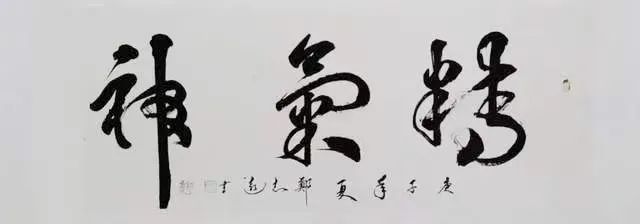 精氣神
庚子年夏鄭志遠書